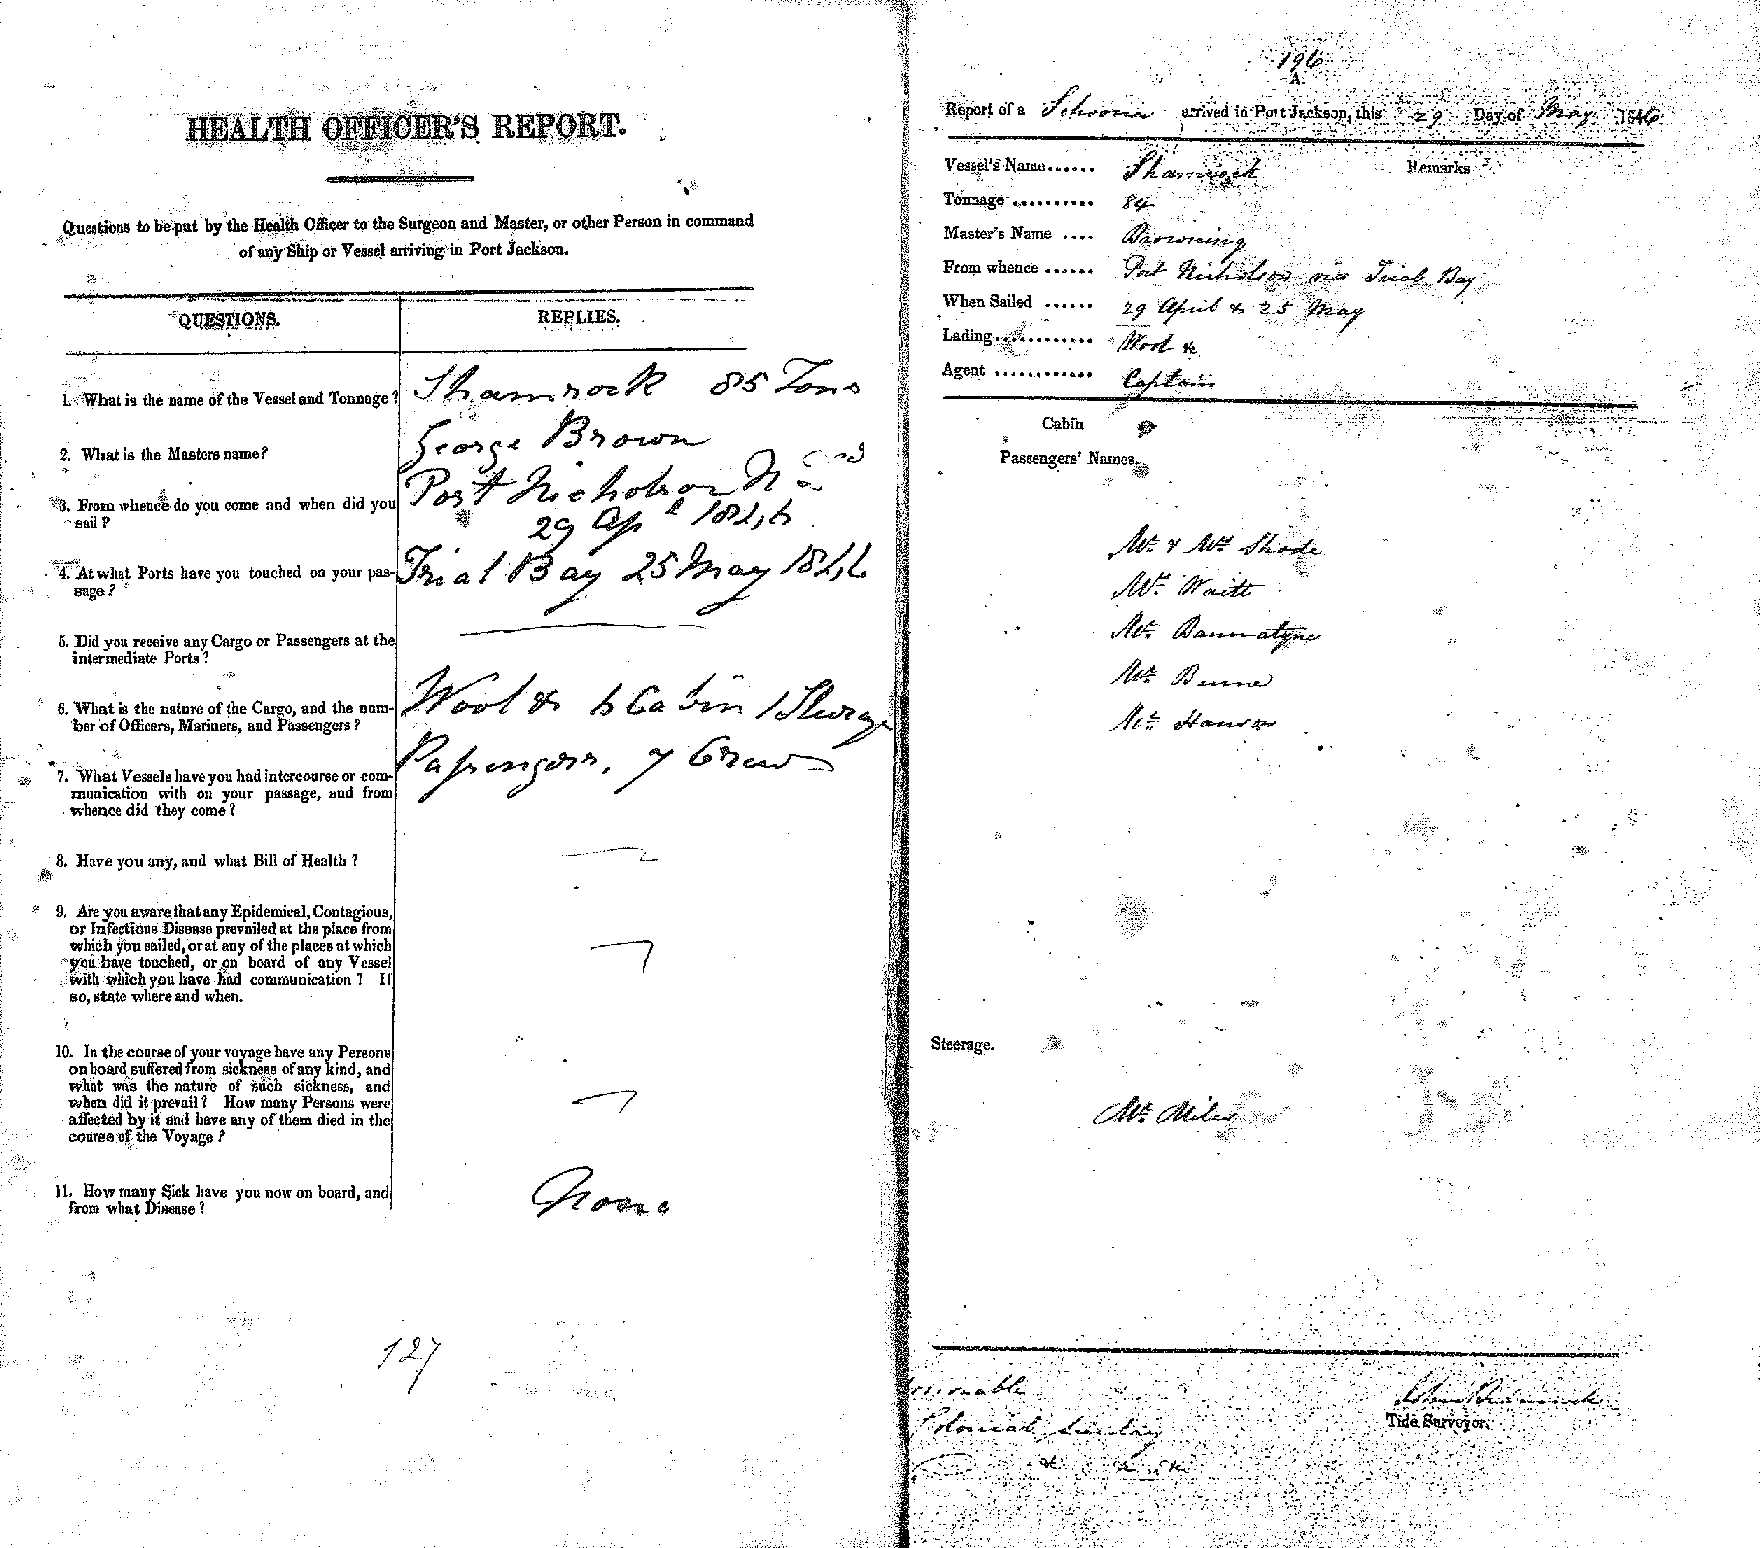 HEALTH OFFICER'S REPORT.
Questions to be put by the Health Officer to the Surgeon and Master, or other Person in command
of any Ship or Vessel arriving in Port Jackson.
QUESTIONS.
REPLIES.
1. What is the name of the Vessel and Tonnage?
Shamrock 85 Tons
2. What is the Masters name?
George Brown
3. From whence do you come and when did you
sail?
Port Nicholson
29 Apl 1846
4. At what Ports have you touched on your pas-
sage?
Trial Bay 25 May 1846
5. Did you receive any Cargo or Passengers at the
intermediate Ports?
6. What is the nature of the Cargo, and the num-
ber of Officers, Mariners, and Passengers?
Wool & 6 Cabin 1 Sterage
Passengers, 7 Crew
7. What Vessels have you had intercourse or com-
munication with on your passage, and from
whence did they come?
8. Have you any, and what Bill of Health?
9. Are you aware that any Epidemical, Contagious,
or Infectious Disease prevailed at the place from
which you sailed, or at any of the places at which
you have touched, or on board of any Vessel
with which you have had communication? If
so, state where and when.
10. In the course of your voyage have any Persons
on board suffered from sickness of any kind, and
what was the nature of such sickness, and
when did it prevail? How many Persons were
affected by it and have any of them died in the
course of the Voyage?
11. How many Sick have you now on board, and
from what Disease?
None
127
196
A.
Report of a Schooner arrived in Port Jackson, this 29 Day of May 1846
Vessel's Name...... Shamrock Remarks
Tonnage .......... 84
Master's Name .... Browning
From whence ...... Port Nicholson via Trial Bay
When Sailed ...... 29 April & 25 May
Lading............ Wool &
Agent ............ Captain
Cabin
Passengers' Names.
Mr & Mrs Shode
Mr Waitt
Mr Bannatyne
Mr
Mr
Steerage.
Mr Miles
Colonial
Tide Surveyor.